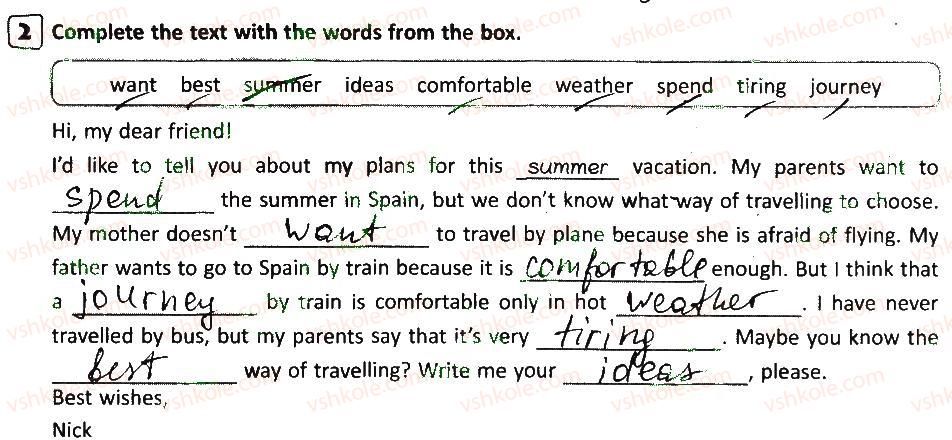 2 Complete the text with the words from the box.
want best summer ideas comfortable weather spend tiring journey
Hi, my dear friend!
I'd like to tell you about my plans for this summer vacation. My parents want to
spend the summer in Spain, but we don't know what way of travelling to choose.
My mother doesn't want to travel by plane because she is afraid of flying. My
father wants to go to Spain by train because it is comfortable enough. But I think that
a journey by train is comfortable only in hot weather. I have never
travelled by bus, but my parents say that it's very tiring. Maybe you know the
best way of travelling? Write me your ideas, please.
Best wishes,
Nick